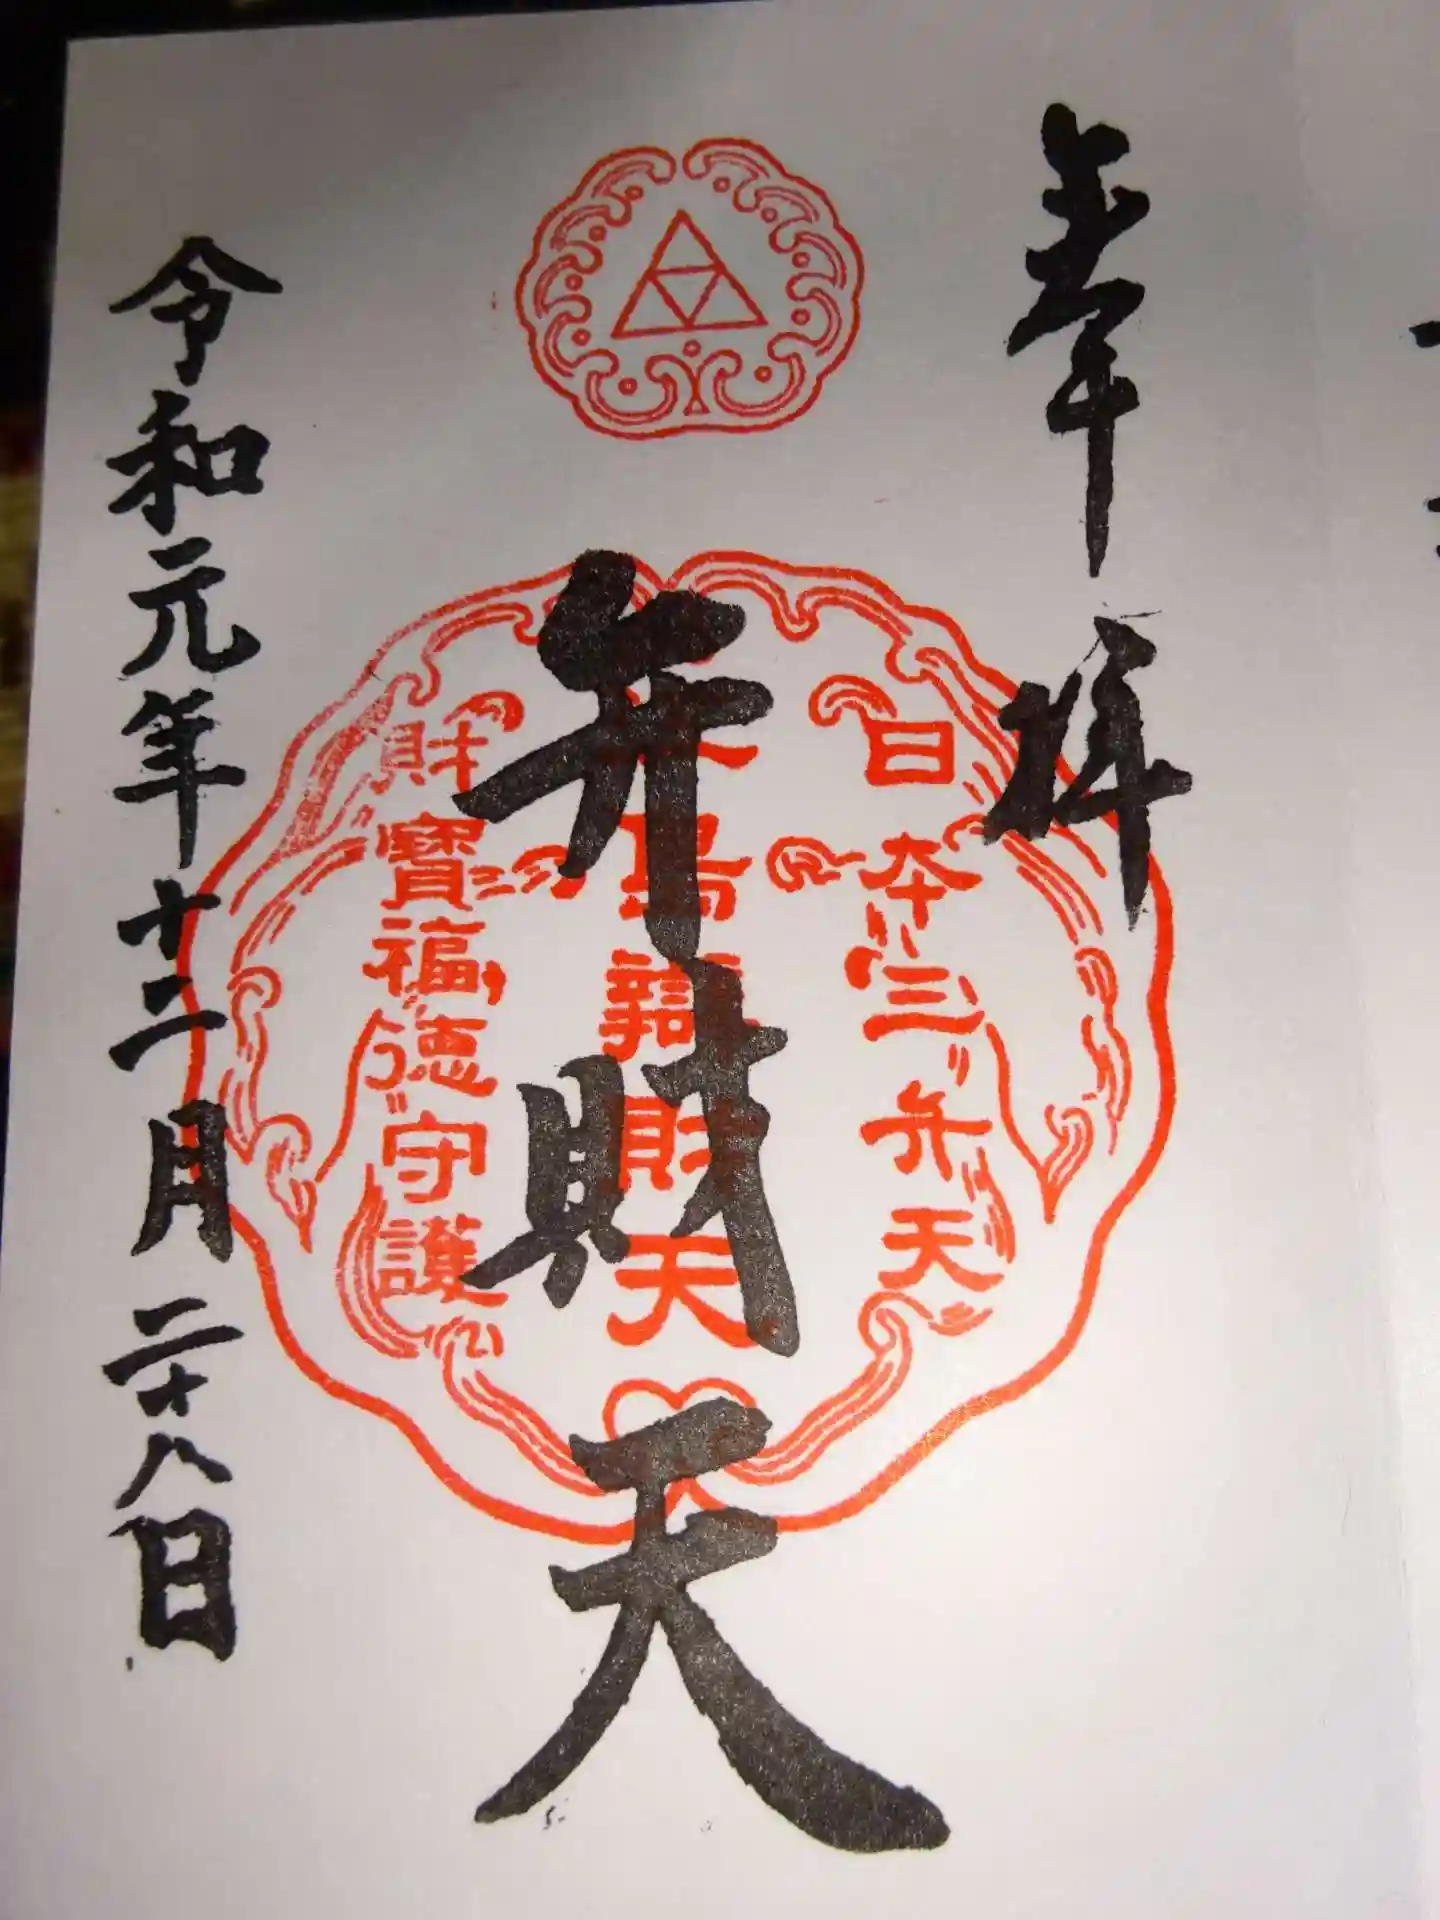 奉拝
日本三弁天
弁財天
島辯財天
財寶福徳守護
令和元年十二月二十八日